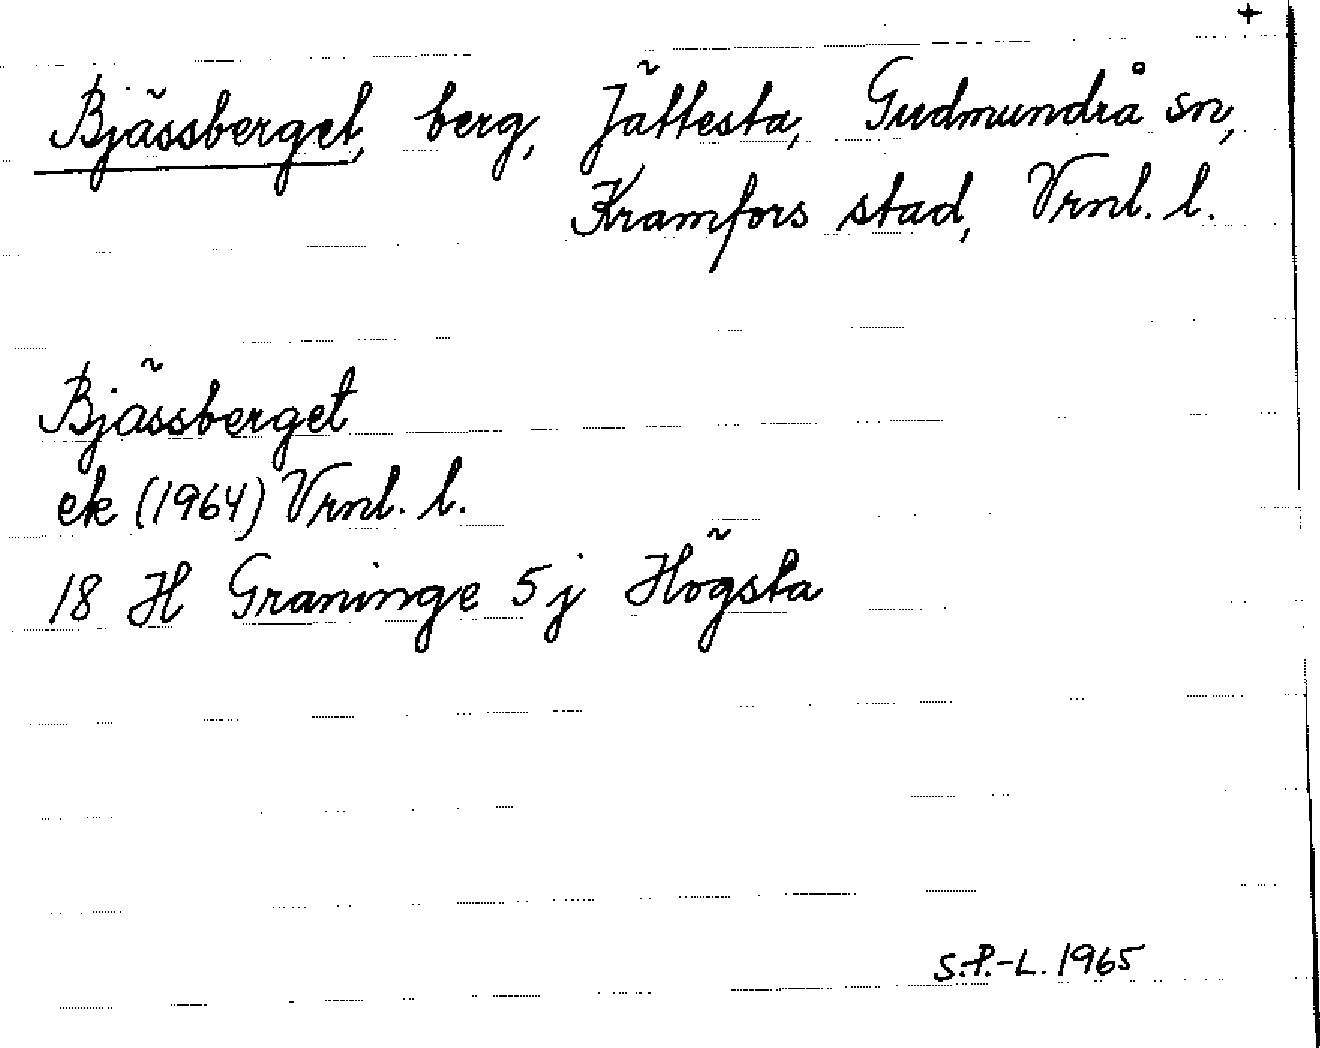 +
Bjässberget, berg, Jättesta, Gudmundrå sn,
Kramfors stad, Vrnl. l.
Bjässberget
ek (1964) Vrnl. l.
18 H Graninge 5j Högsta
S.P.-L. 1965